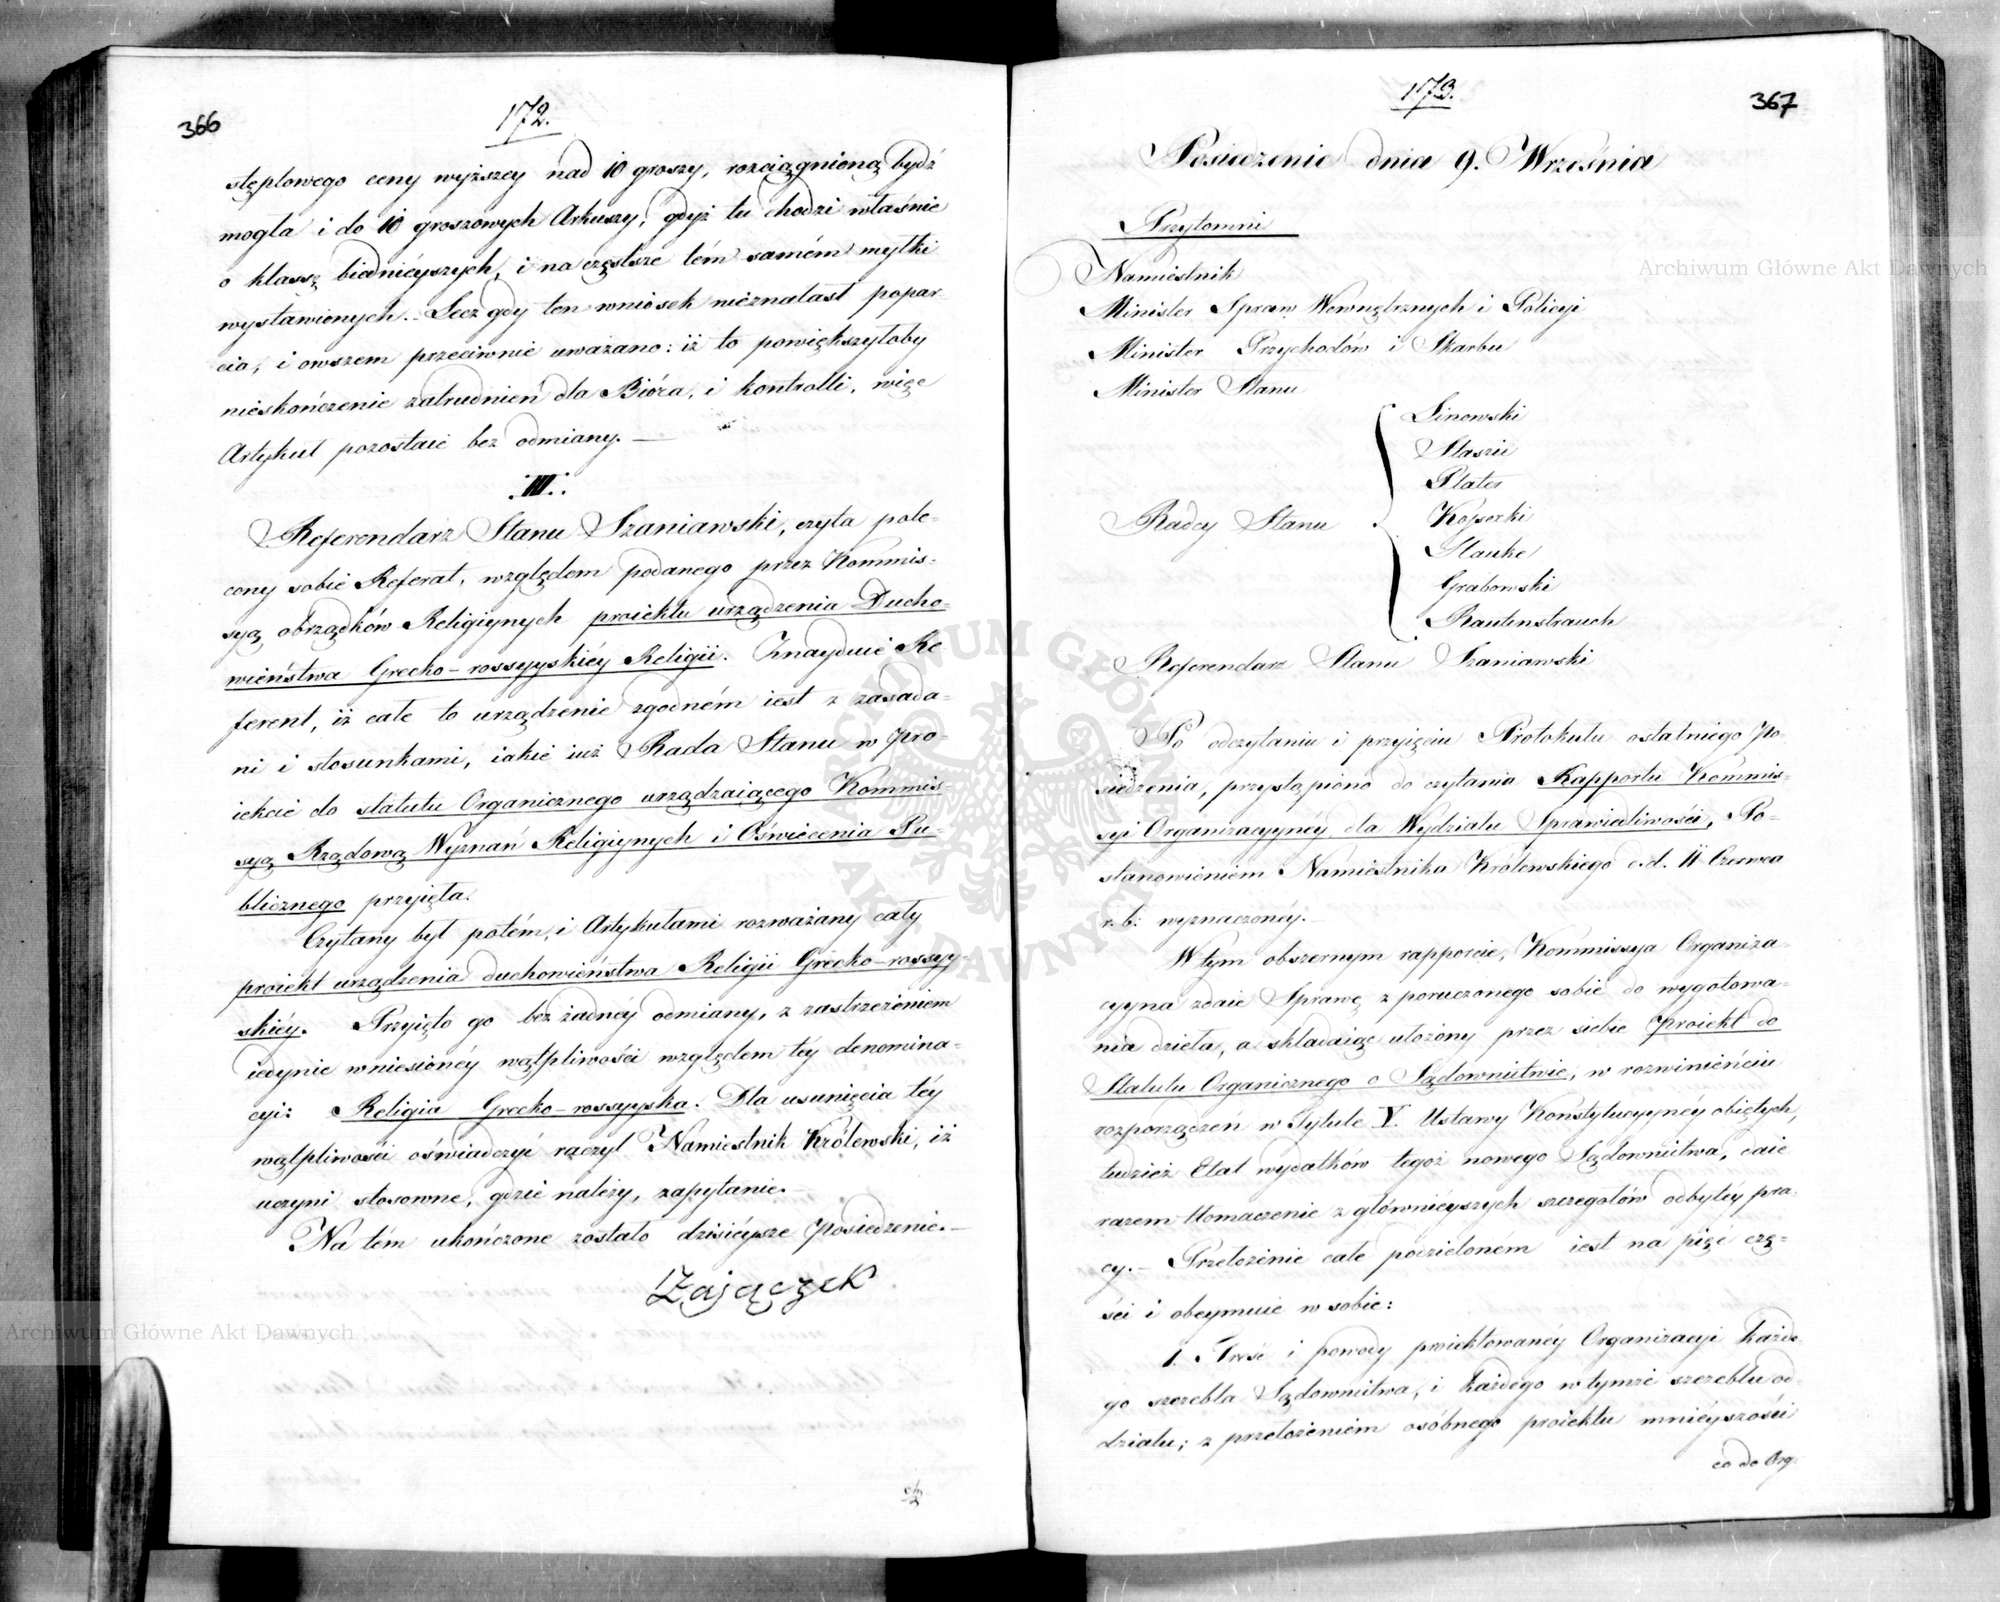 366
172.
stęplowego ceny wyższey nad 10 groszy, rozciągnioną bydź
mogła i do 10 groszowych Arkuszy, gdyż tu chodzi właśnie
o klassę biednieyszych, i na częstsze tém samém myłki
wystawionych. Lecz gdy ten wniosek nieznalazł popar-
cia, i owszem przeciwnie uważano: iż to powiększyłoby
nieskończenie zatrudnień dla Bióra, i kontrolli, więc
Artykuł pozostaie bez odmiany. —
III.
Referendarz Stanu Szaniawski, czyta pole-
cony sobie Referat, względem podanego przez Kommis-
syą obrządków Religiynych proiektu urządzenia Ducho-
wieństwa Grecko-rossyyskiéy Religii. Znayduie Re
ferent, iż całe to urządzenie zgodném iest z zasada-
mi i stosunkami, iakie iuż Rada Stanu w Pro-
iekcie do statutu Organicznego urządzaiącego Kommis
syą Rządową Wyznań Religiynych i Oświecenia Pu-
blicznego przyięła.
Czytany był potém, i Artykułami rozważany cały
proiekt urządzenia duchowieństwa Religii Grecko-rossyy-
skiéy. Przyięto go bez żadnéy odmiany, z zastrzeżeniem
iedynie wniesionéy wątpliwości względem téy denomina-
cyi: Religia Grecko-rossyyska. Dla usunięcia téy
wątpliwości oświadczyć raczył Namiestnik Królewski, iż
uczyni stosowne, gdzie należy, zapytanie. —
Na tém ukończone zostało dzisiéysze Posiedzenie. —
Zajączek
367
173.
Posiedzenie dnia 9. Września
Przytomni
Namiestnik
Minister Spraw Wewnętrznych i Policyi
Minister Przychodów i Skarbu
Minister Stanu
Radcy Stanu
Linowski
Staszic
Plater
Kożuchowski
Hauke
Grabowski
Rautenstrauch
Referendarz Stanu Szaniawski
Po odczytaniu i przyięciu Protokułu ostatniego Po-
siedzenia, przystąpiono do czytania Rapportu Kommis-
syi Organizacyynéy dla Wydziału Sprawiedliwości, Po-
stanowieniem Namiestnika Królewskiego d.d. 11 Czerwca
r.b: wyznaczonéy. —
W tym obszernym rapporcie, Kommissya Organiza-
cyyna zdaie Sprawę z poruczonego sobie do wygotowa-
nia dzieła, a składaiąc ułożony przez siebie Proiekt do
Statutu Organicznego o Sądownictwie, w rozwinieńciu
rozporządzeń w Tytule V. Ustawy Konstytucyynéy obiętych,
tudzież Etat wydatków tegoż nowego Sądownictwa, daie
razem tłomaczenie z główniéyszych szczegółów odbytéy pra-
cy. — Przełożenie całe podzielonem iest na pięć czę-
ści i obeymuie w sobie:
1. Treść i powody proiektowanéy Organizacyi każde-
go szczebla Sądownictwa, i każdego w tymże szczeblu od-
działu; z przełożeniem osóbnego proiektu mnieyszości
co do Org:
Archiwum Główne Akt Dawnych
Archiwum Główne Akt Dawnych
ARCHIWUM GŁÓWNE AKT DAWNYCH